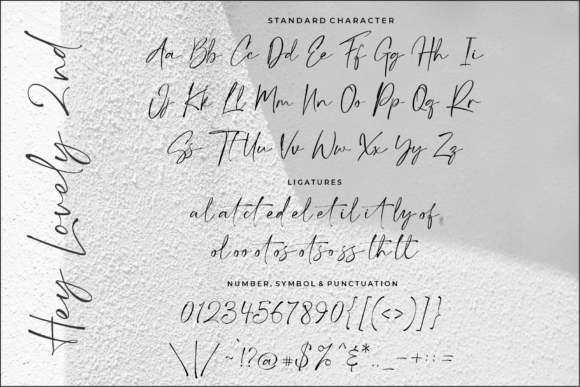 Hey Lovely 2nd
STANDARD CHARACTER
Aa Bb Cc Dd Ee Ff Gg Hh Ii
Jj Kk Ll Mm Nn Oo Pp Qq Rr
Ss Tt Uu Vv Ww Xx Yy Zz
LIGATURES
al at ct ed el et il it ly of
ol oo ot os ots o ss th tt
NUMBER, SYMBOL & PUNCTUATION
01234567890{[(<>)]}
\|/~`!?@#$%^&*.._-+::=